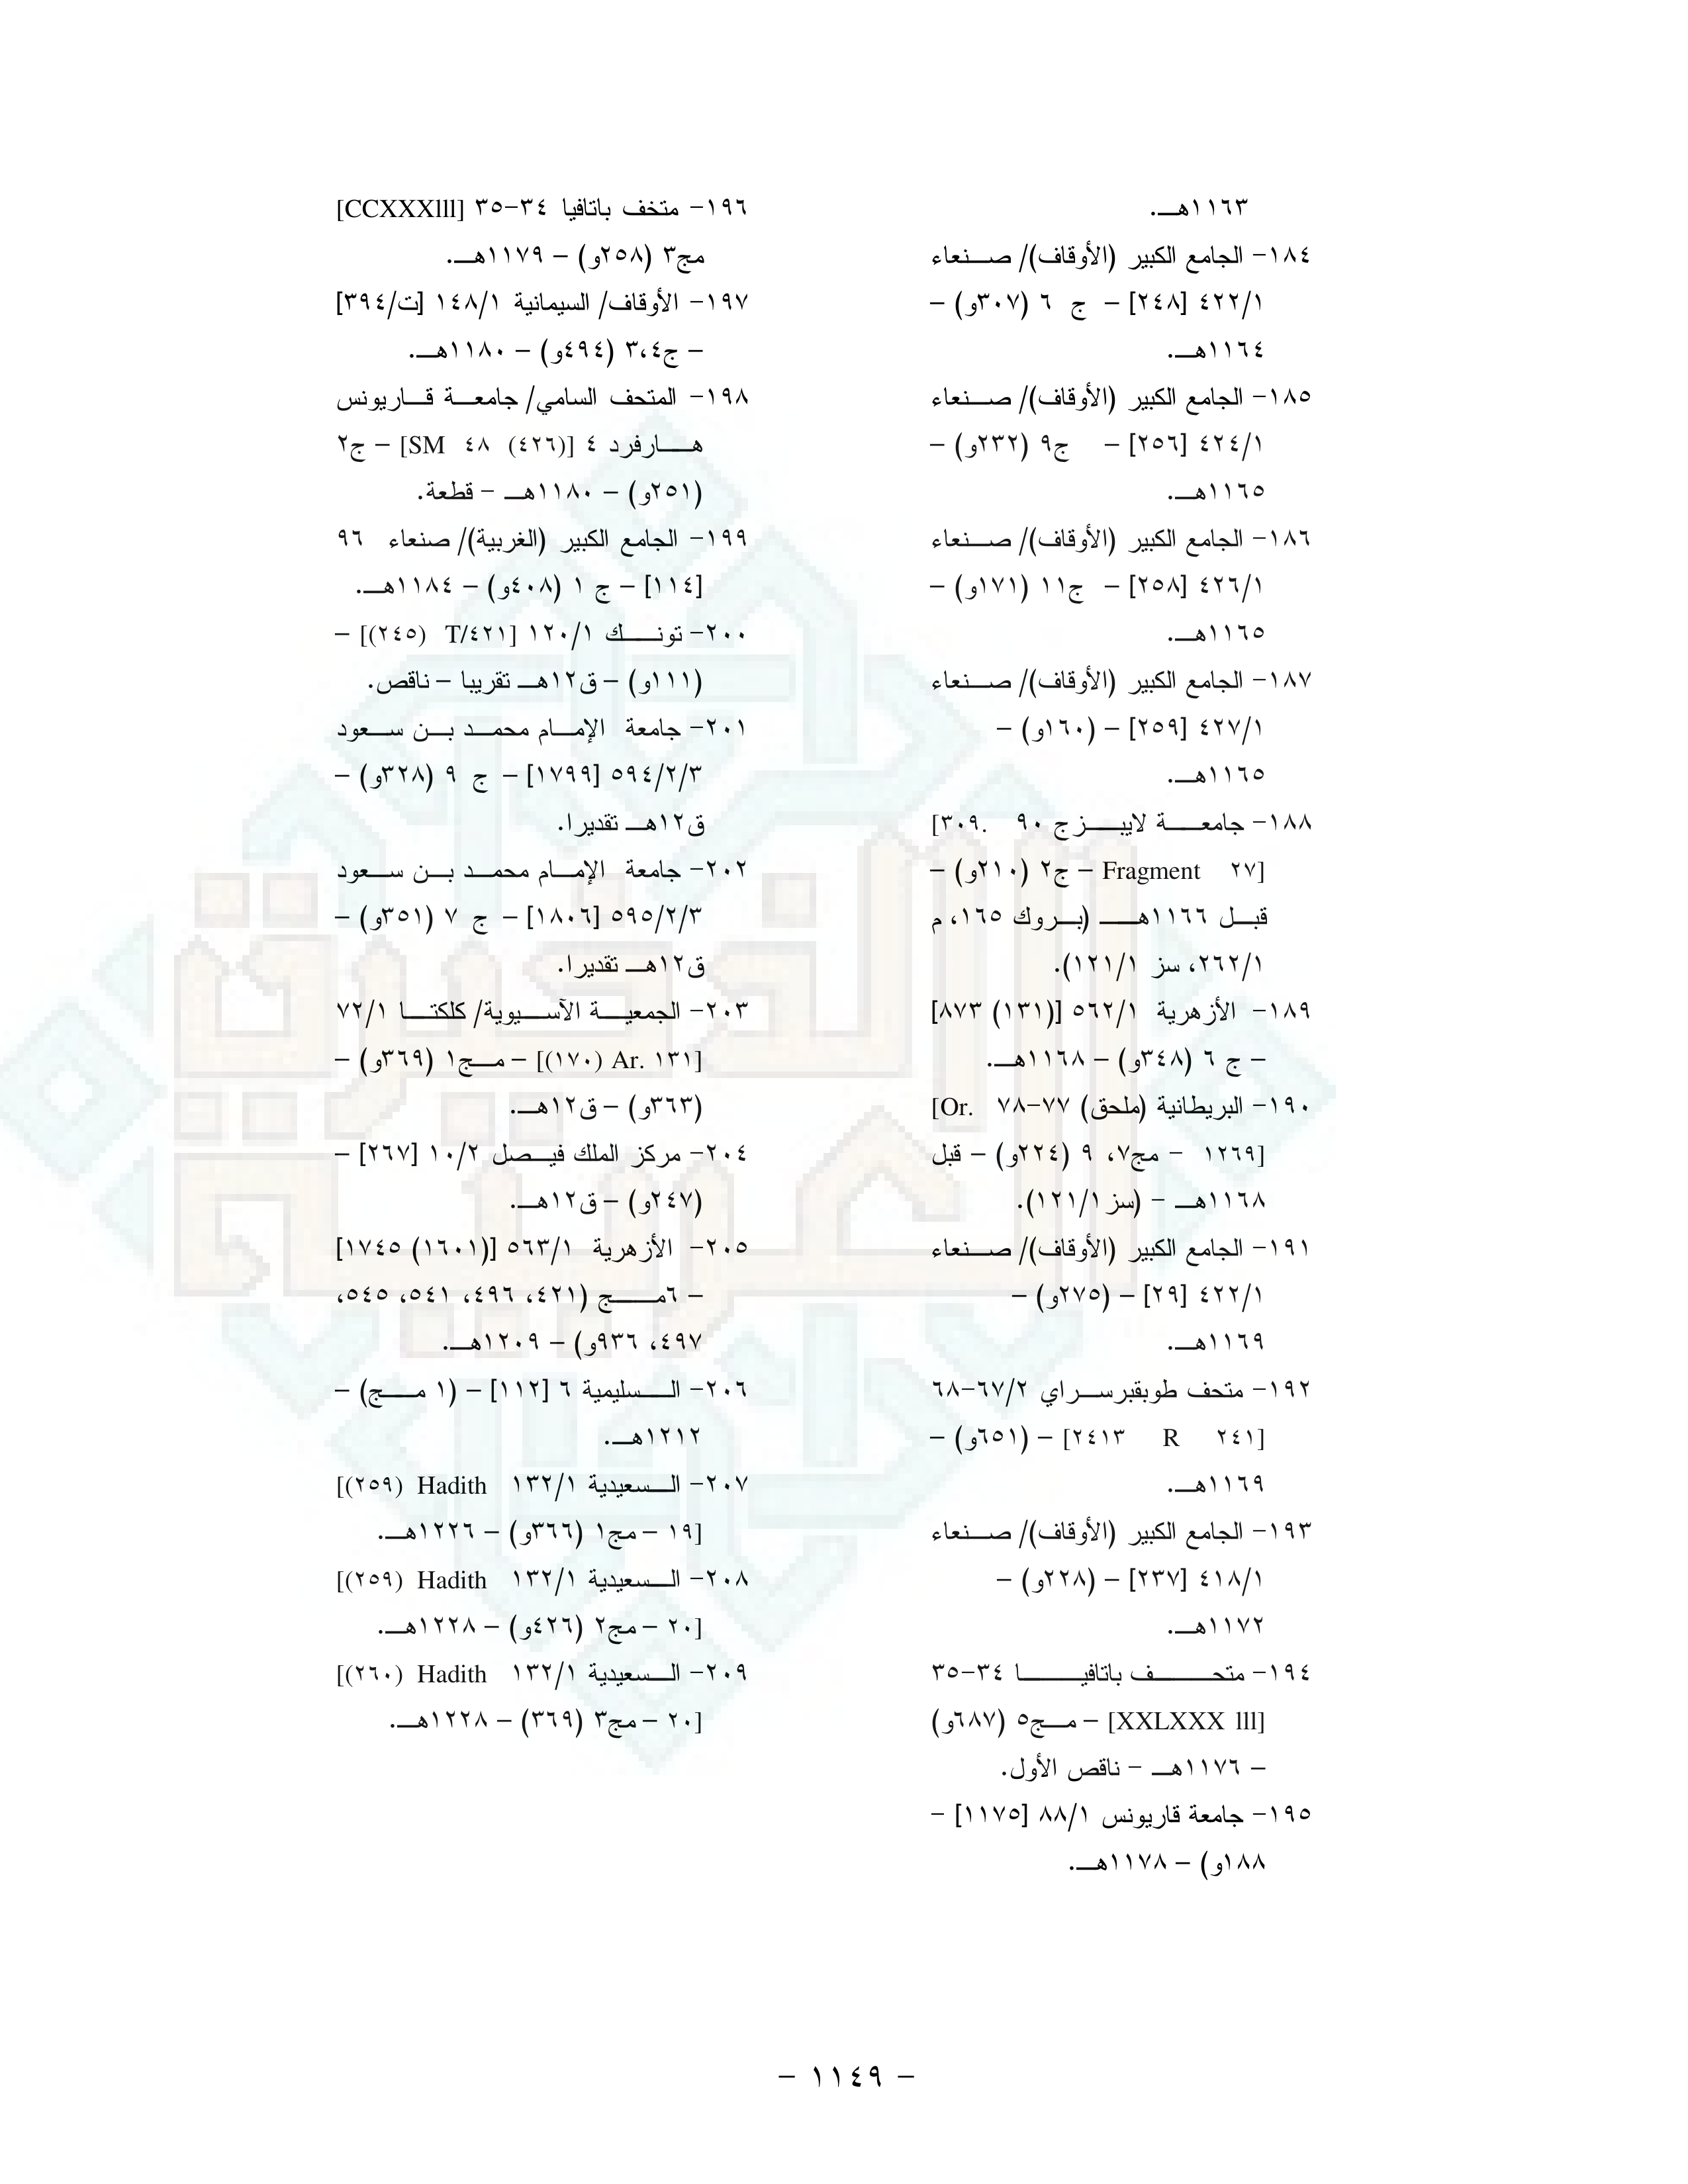 ١١٦٣هـ.
١٨٤- الجامع الكبير (الأوقاف)/ صنعاء
٤٢٢/١ [٢٤٨] - ج ٦ (٣٠٧و) -
١١٦٤هـ.
١٨٥- الجامع الكبير (الأوقاف)/ صنعاء
٤٢٤/١ [٢٥٦] - ج٩ (٢٣٢و) -
١١٦٥هـ.
١٨٦- الجامع الكبير (الأوقاف)/ صنعاء
٤٢٦/١ [٢٥٨] - ج١١ (١٧١و) -
١١٦٥هـ.
١٨٧- الجامع الكبير (الأوقاف)/ صنعاء
٤٢٧/١ [٢٥٩] - (١٦٠و) -
١١٦٥هـ.
١٨٨- جامعة لايبزج ٩٠ [٣٠٩.
Fragment ٢٧] - ج٢ (٢١٠و) -
قبل ١١٦٦هـ (بروك ١٦٥، م
٢٦٢/١، سز ١٢١/١).
١٨٩- الأزهرية ٥٦٢/١ [(١٣١) ٨٧٣]
- ج ٦ (٣٤٨و) - ١١٦٨هـ.
١٩٠- البريطانية (ملحق) ٧٧-٧٨ [Or.
١٢٦٩] - مج٧، ٩ (٢٢٤و) - قبل
١١٦٨هـ - (سز ١٢١/١).
١٩١- الجامع الكبير (الأوقاف)/ صنعاء
٤٢٢/١ [٢٩] - (٢٧٥و) -
١١٦٩هـ.
١٩٢- متحف طوبقبرسراي ٦٧/٢-٦٨
[٢٤١٣ R ٢٤١] - (٦٥١و) -
١١٦٩هـ.
١٩٣- الجامع الكبير (الأوقاف)/ صنعاء
٤١٨/١ [٢٣٧] - (٢٢٨و) -
١١٧٢هـ.
١٩٤- متحف باتافيا ٣٤-٣٥
[XXLXXX lll] - مج٥ (٦٨٧و)
- ١١٧٦هـ - ناقص الأول.
١٩٥- جامعة قاريونس ٨٨/١ [١١٧٥] -
١٨٨و) - ١١٧٨هـ.
١٩٦- متخف باتافيا ٣٤-٣٥ [CCXXXlll]
مج٣ (٢٥٨و) - ١١٧٩هـ.
١٩٧- الأوقاف/ السيمانية ١٤٨/١ [ت/٣٩٤]
- ج٣،٤ (٤٩٤و) - ١١٨٠هـ.
١٩٨- المتحف السامي/ جامعة قاريونس
هارفرد ٤ [SM ٤٨ (٤٢٦)] - ج٢
(٢٥١و) - ١١٨٠هـ - قطعة.
١٩٩- الجامع الكبير (الغربية)/ صنعاء ٩٦
[١١٤] - ج ١ (٤٠٨و) - ١١٨٤هـ.
٢٠٠- تونك ١٢٠/١ [(٢٤٥) T/٤٢١] -
(١١١و) - ق١٢هـ تقريبا - ناقص.
٢٠١- جامعة الإمام محمد بن سعود
٥٩٤/٢/٣ [١٧٩٩] - ج ٩ (٣٢٨و) -
ق١٢هـ تقديرا.
٢٠٢- جامعة الإمام محمد بن سعود
٥٩٥/٢/٣ [١٨٠٦] - ج ٧ (٣٥١و) -
ق١٢هـ تقديرا.
٢٠٣- الجمعية الآسيوية/ كلكتا ٧٢/١
[(١٧٠) Ar. ١٣١] - مج١ (٣٦٩و) -
(٣٦٣و) - ق١٢هـ.
٢٠٤- مركز الملك فيصل ١٠/٢ [٢٦٧] -
(٢٤٧و) - ق١٢هـ.
٢٠٥- الأزهرية ٥٦٣/١ [(١٦٠١) ١٧٤٥]
- ٦مج (٤٢١، ٤٩٦، ٥٤١، ٥٤٥،
٤٩٧، ٩٣٦و) - ١٢٠٩هـ.
٢٠٦- السليمية ٦ [١١٢] - (١ مج) -
١٢١٢هـ.
٢٠٧- السعيدية ١٣٢/١ [(٢٥٩) Hadith
١٩] - مج١ (٣٦٦و) - ١٢٢٦هـ.
٢٠٨- السعيدية ١٣٢/١ [(٢٥٩) Hadith
٢٠] - مج٢ (٤٢٦و) - ١٢٢٨هـ.
٢٠٩- السعيدية ١٣٢/١ [(٢٦٠) Hadith
٢٠] - مج٣ (٣٦٩) - ١٢٢٨هـ.
- ١١٤٩ -